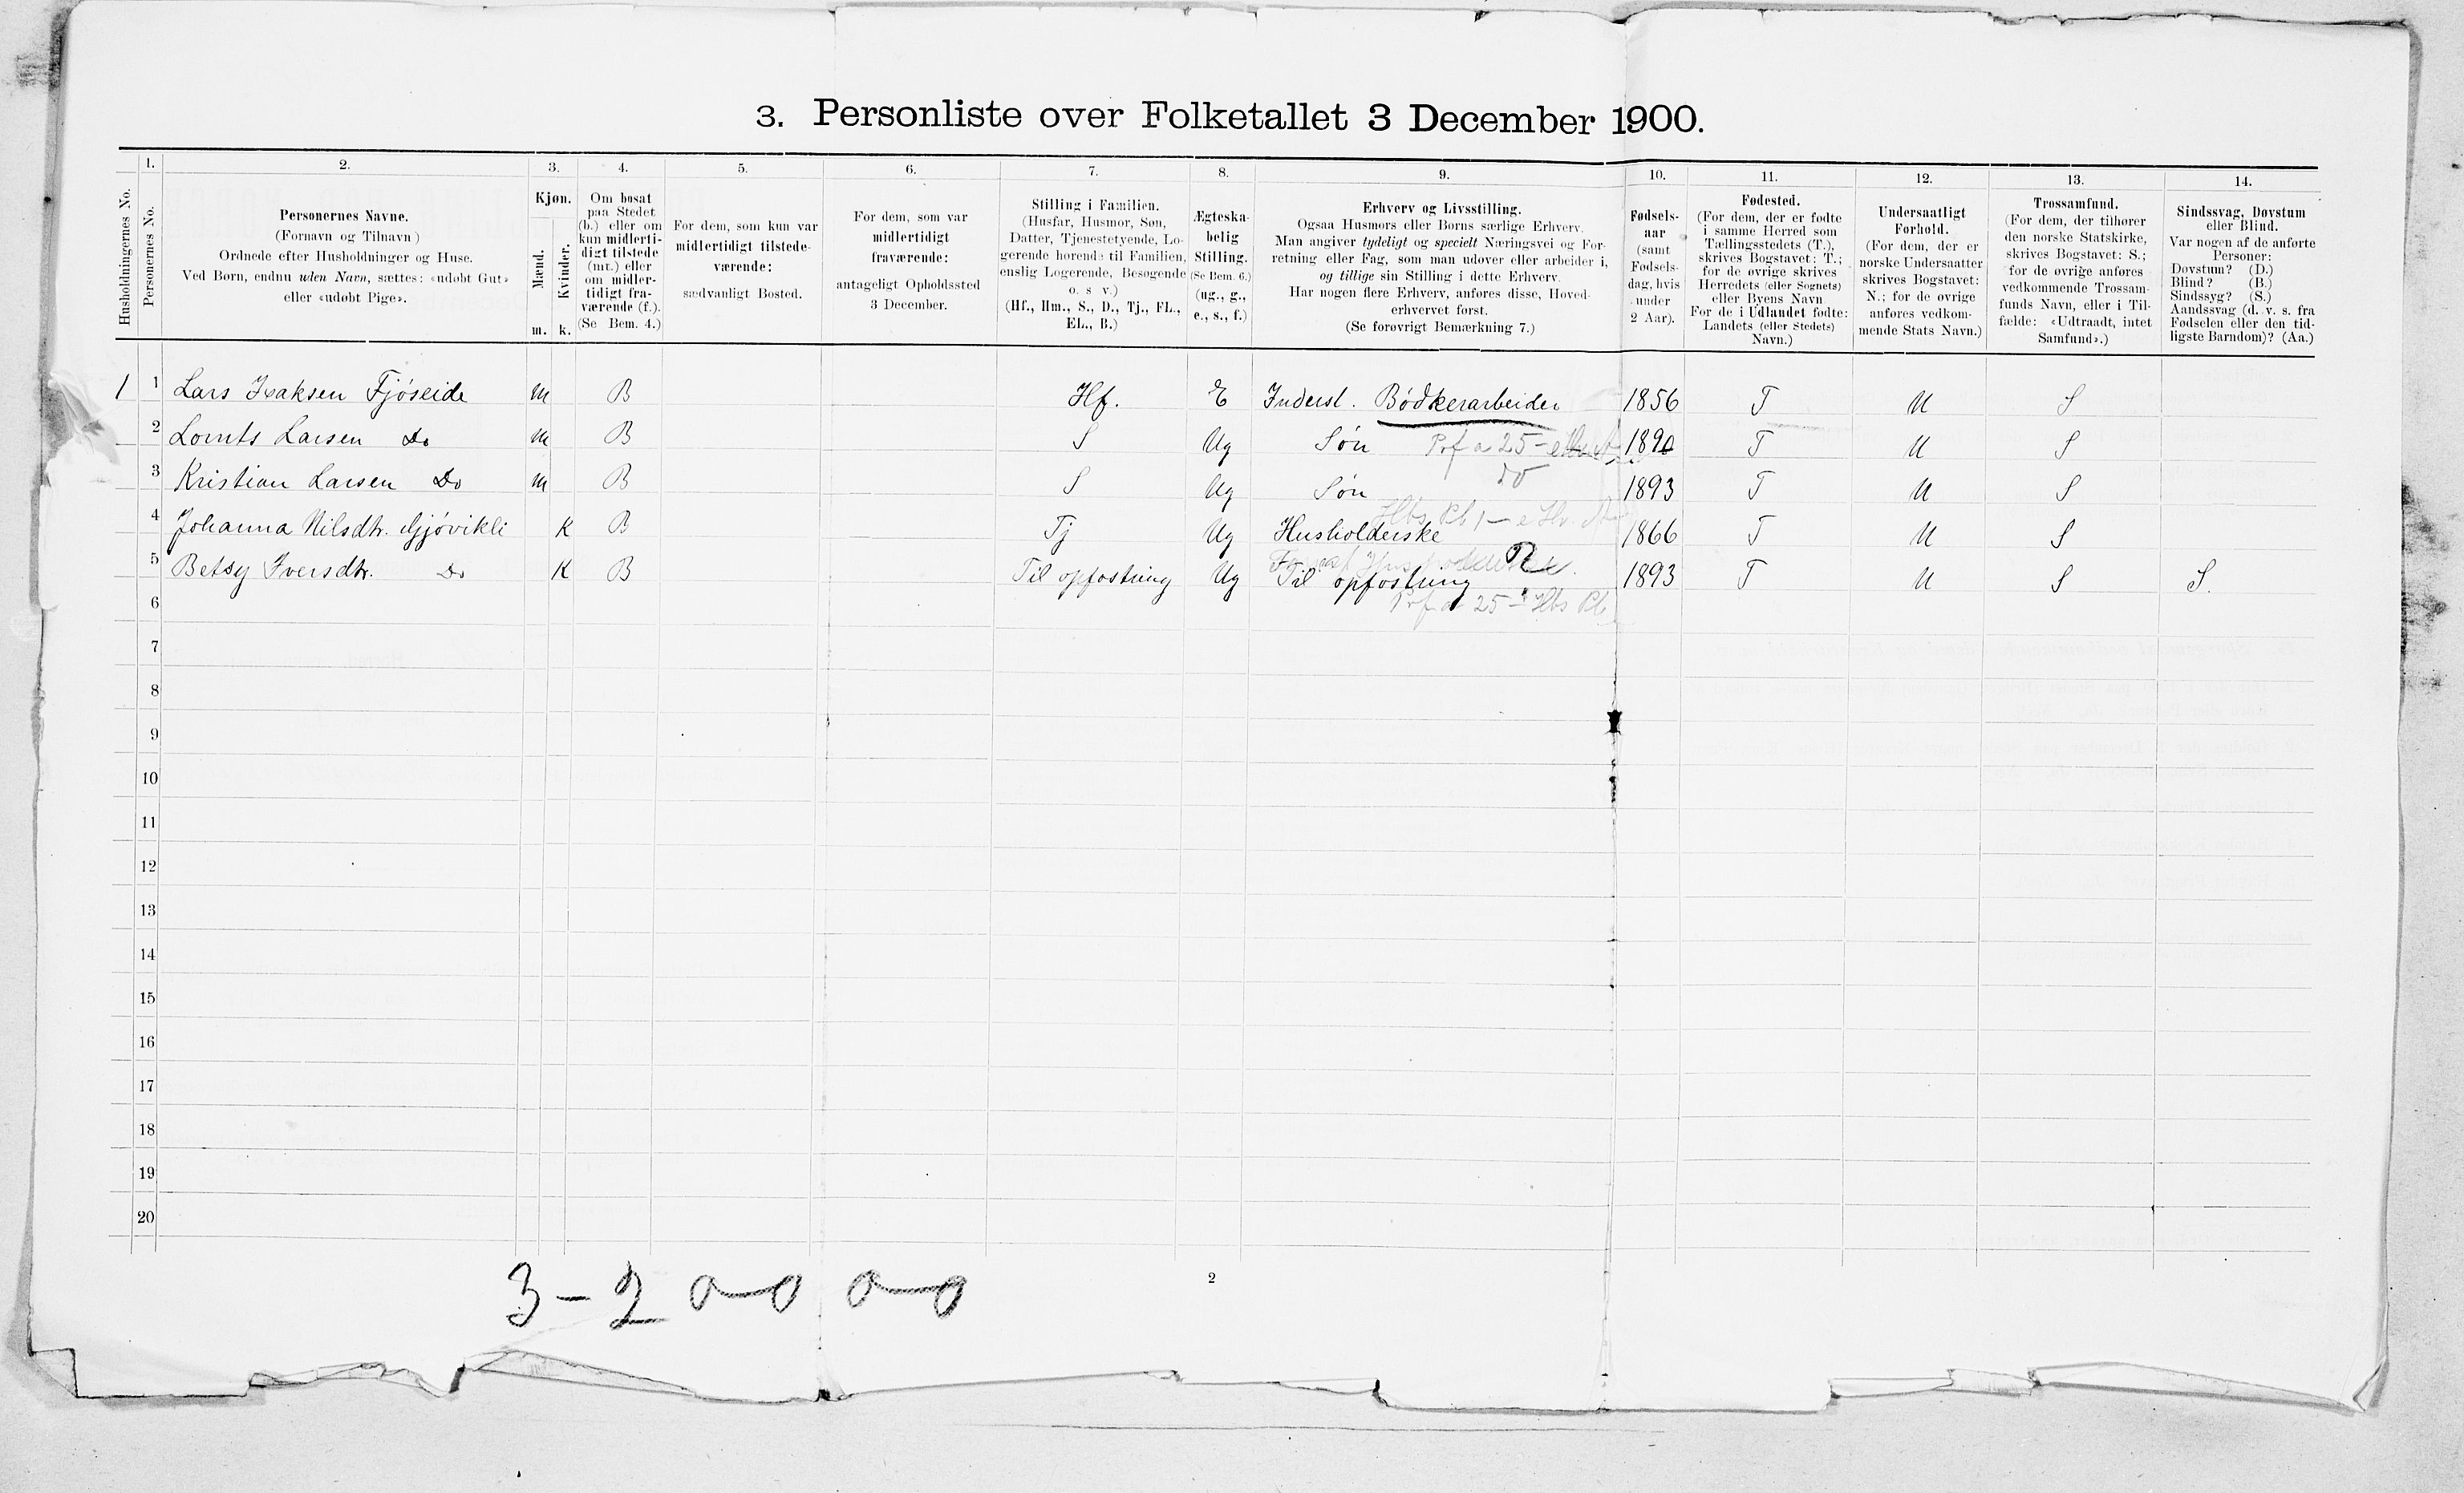 3. Personliste over Folketallet 3 December 1900.
Husholdningernes No.
1.
Personernes No.
2.
Personernes Navne.
(Fornavn og Tilnavn)
Ordnede efter Husholdninger og Huse.
Ved Børn, endnu uden Navn, sættes: «udøbt Gut»
eller «udøbt Pige».
3.
Kjøn.
Mænd.
Kvinder.
m. k.
4.
Om bosat
paa Stedet
(b.) eller om
kun midlerti-
digt tilstede
(mt.) eller
om midler-
tidigt fra-
værende (f.).
(Se Bem. 4.)
5.
For dem, som kun var
midlertidigt tilstede-
værende:
sædvanligt Bosted.
6.
For dem, som var
midlertidigt
fraværende:
antageligt Opholdssted
3 December.
7.
Stilling i Familien.
(Husfar, Husmor, Søn,
Datter, Tjenestetyende, Lo-
gerende hørende til Familien,
enslig Logerende, Besøgende
o. s v.)
(Hf., Hm., S., D., Tj., FL.,
EL., B.)
8.
Ægteska-
belig
Stilling.
(Se Bem. 6.)
(ug., g.,
e., s., f.)
9.
Erhverv og Livsstilling.
Ogsaa Husmors eller Børns særlige Erhverv.
Man angiver tydeligt og specielt Næringsvei og For-
retning eller Fag, som man udøver eller arbeider i,
og tillige sin Stilling i dette Erhverv.
Har nogen flere Erhverv, anføres disse, Hoved-
erhvervet først.
(Se forøvrigt Bemærkning 7.)
10.
Fødsels-
aar
(samt
Fødsels-
dag, hvis
under
2 Aar).
11.
Fødested.
(For dem, der er fødte
i samme Herred som
Tællingsstedets (T.),
skrives Bogstavet: T.;
for de øvrige skrives
Herredets (eller Sognets)
eller Byens Navn
For de i Udlandet fødte:
Landets (eller Stedets)
Navn.)
12.
Undersaatligt
Forhold.
(For dem, der er
norske Undersaatter
skrives Bogstavet:
N.; for de øvrige
anføres vedkom-
mende Stats Navn.)
13.
Trossamfund.
(For dem, der tilhører
den norske Statskirke,
skrives Bogstavet: S.;
for de øvrige anføres
vedkommende Trossam-
funds Navn, eller i Til-
fælde: «Udtraadt, intet
Samfund».)
14.
Sindssvag, Døvstum
eller Blind.
Var nogen af de anførte
Personer:
Døvstum? (D.)
Blind? (B.)
Sindssyg? (S.)
Aandssvag (d. v. s. fra
Fødselen eller den tid-
ligste Barndom)? (Aa.)
1 1 Lars Isaksen Fjøseide m B Hf. E Inderst. Bødkerarbeider 1856 T N S
2 Lornts Larsen Do m B S Ug Søn 1890 T N S
3 Kristian Larsen Do m B S Ug Søn 1893 T N S
4 Johanna Nilsdtr. Gjøvikli K B Tj Ug Husholderske 1866 T N S
5 Betsy Iversdtr. Do K B Til opfostring Ug Til opfostring 1893 T N S S.
6
7
8
9
10
11
12
13
14
15
16
17
18
19
20
3 - 2 0-0 0-0
2